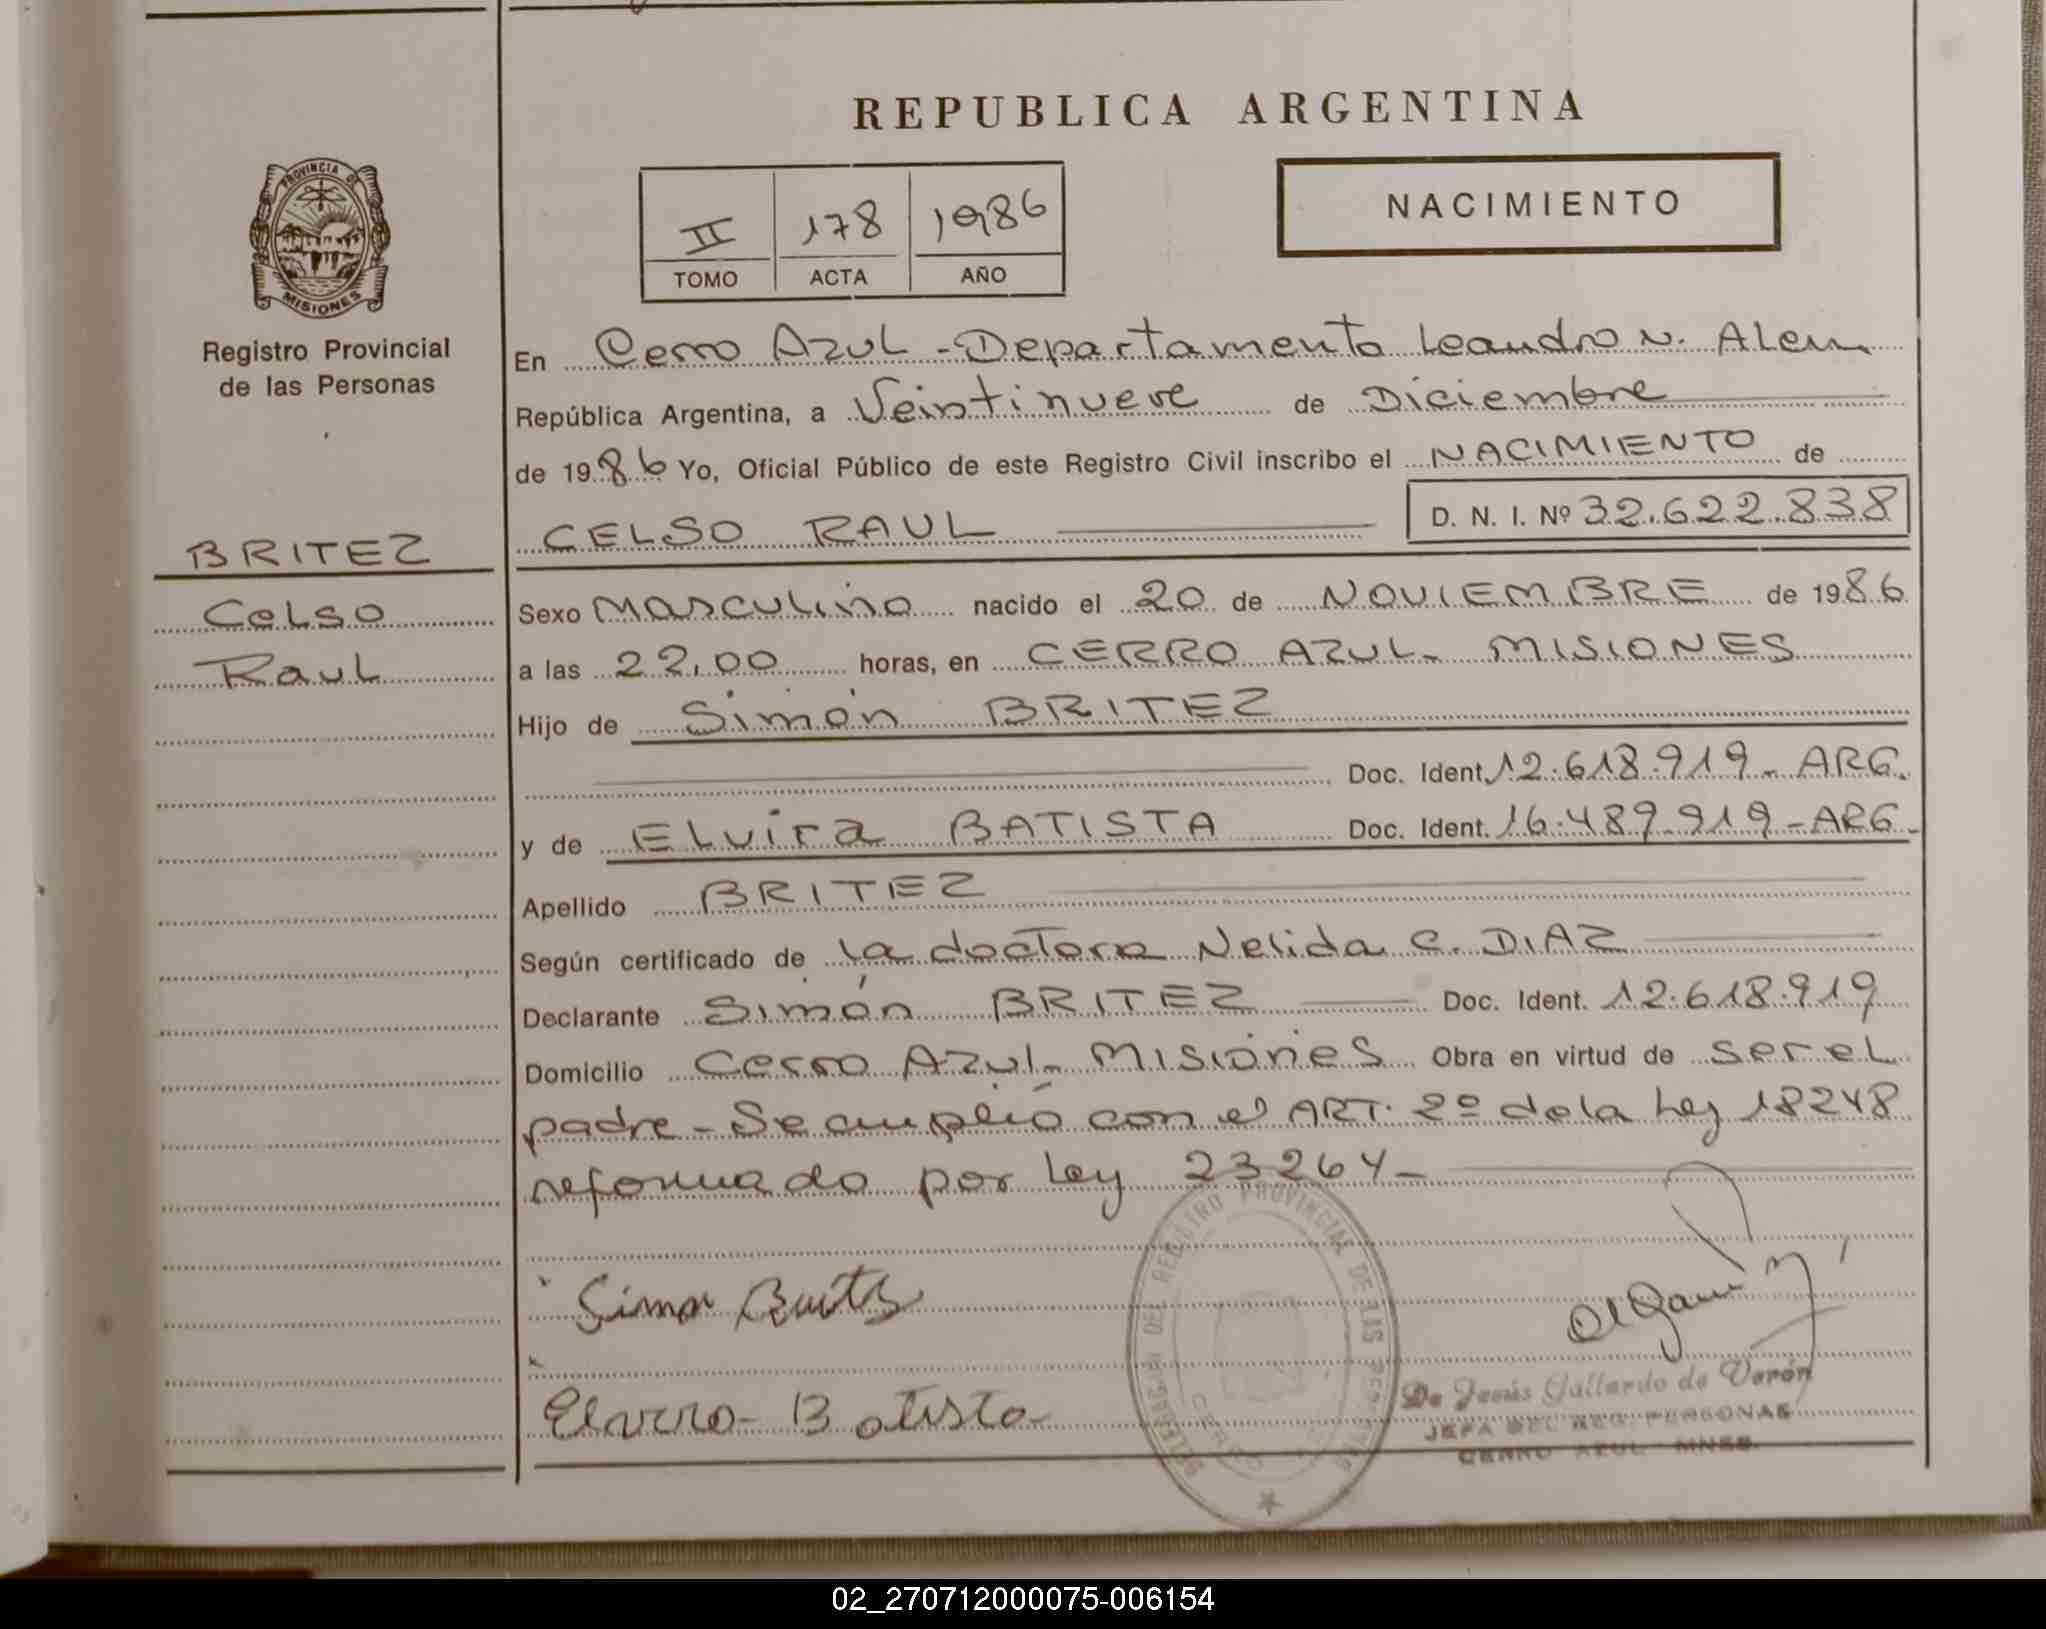 REPUBLICA ARGENTINA
NACIMIENTO
II 178 1986
TOMO ACTA AÑO
PROVINCIA DE
MISIONES
Registro Provincial
de las Personas
BRITEZ
Celso
Raul
En Cerro Azul - Departamento Leandro N. Alem
República Argentina, a Veintinueve de Diciembre
de 1986 Yo, Oficial Público de este Registro Civil inscribo el NACIMIENTO de
CELSO RAUL D. N. I. Nº 32.622.838
Sexo masculino nacido el 20 de NOVIEMBRE de 1986
a las 22,00 horas, en CERRO AZUL- MISIONES
Hijo de Simón BRITEZ
Doc. Ident. 12.618.919- ARG.
y de Elvira BATISTA Doc. Ident. 16.489.919-ARG-
Apellido BRITEZ
Según certificado de la doctora Nelida C. DIAZ
Declarante Simón BRITEZ Doc. Ident. 12.618.919
Domicilio Cerro Azul- Misiones Obra en virtud de ser el
padre- Se cumplió con el ART. 2º de la Ley 18248
reformado por Ley 23264-
DELEGACION DEL REGISTRO PROVINCIAL DE LAS PERSONAS
CERRO
Simon Britez
Elvira Batista
De Jesús Gallardo de Verón
JEFA DEL REG. PERSONAS
CERRO AZUL - MNES.
02_270712000075-006154